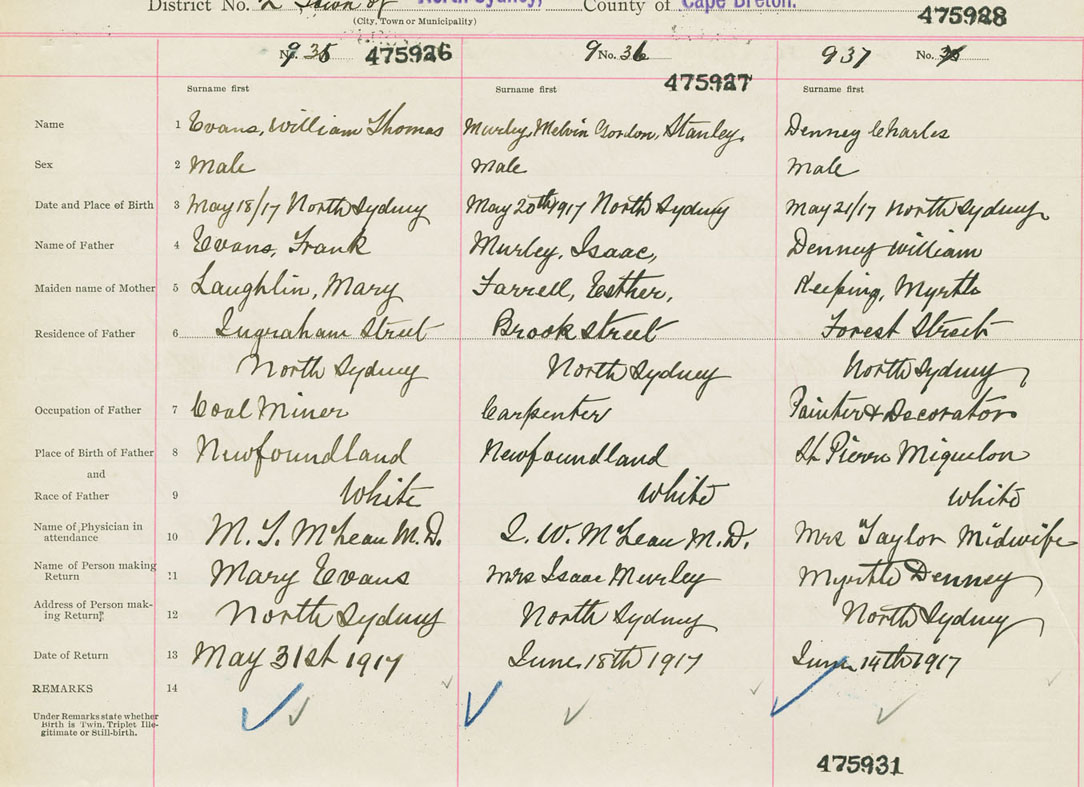 District No. 2 Town of North Sydney, County of Cape Breton.
(City, Town or Municipality)
475928
No. 935 475926
No. 936
475927
937 No.
Surname first Surname first Surname first
Name 1 Evans, William Thomas Murley, Melvin Gordon, Stanley, Denney Charles
Sex 2 Male male male
Date and Place of Birth 3 May 18/17 North Sydney May 20th 1917 North Sydney May 21/17 North Sydney
Name of Father 4 Evans, Frank Murley, Isaac, Denney William
Maiden name of Mother 5 Laughlin, Mary Farrell, Esther, Keeping, Myrtle
Residence of Father 6 Ingraham Street Brook Street Forest Street
North Sydney North Sydney North Sydney
Occupation of Father 7 Coal Miner Carpenter Painter & Decorator
Place of Birth of Father 8 Newfoundland Newfoundland St Pierre Miquelon
and
Race of Father 9 White White White
Name of Physician in
attendance 10 M. T. McLean M.D. D. W. McLean M.D. Mrs Taylor Midwife
Name of Person making
Return 11 Mary Evans Mrs Isaac Murley Myrtle Denney
Address of Person mak-
ing Return 12 North Sydney North Sydney North Sydney
Date of Return 13 May 31st 1917 June 18th 1917 June 14th 1917
REMARKS 14
Under Remarks state whether
Birth is Twin, Triplet Ille-
gitimate or Still-birth.
475931